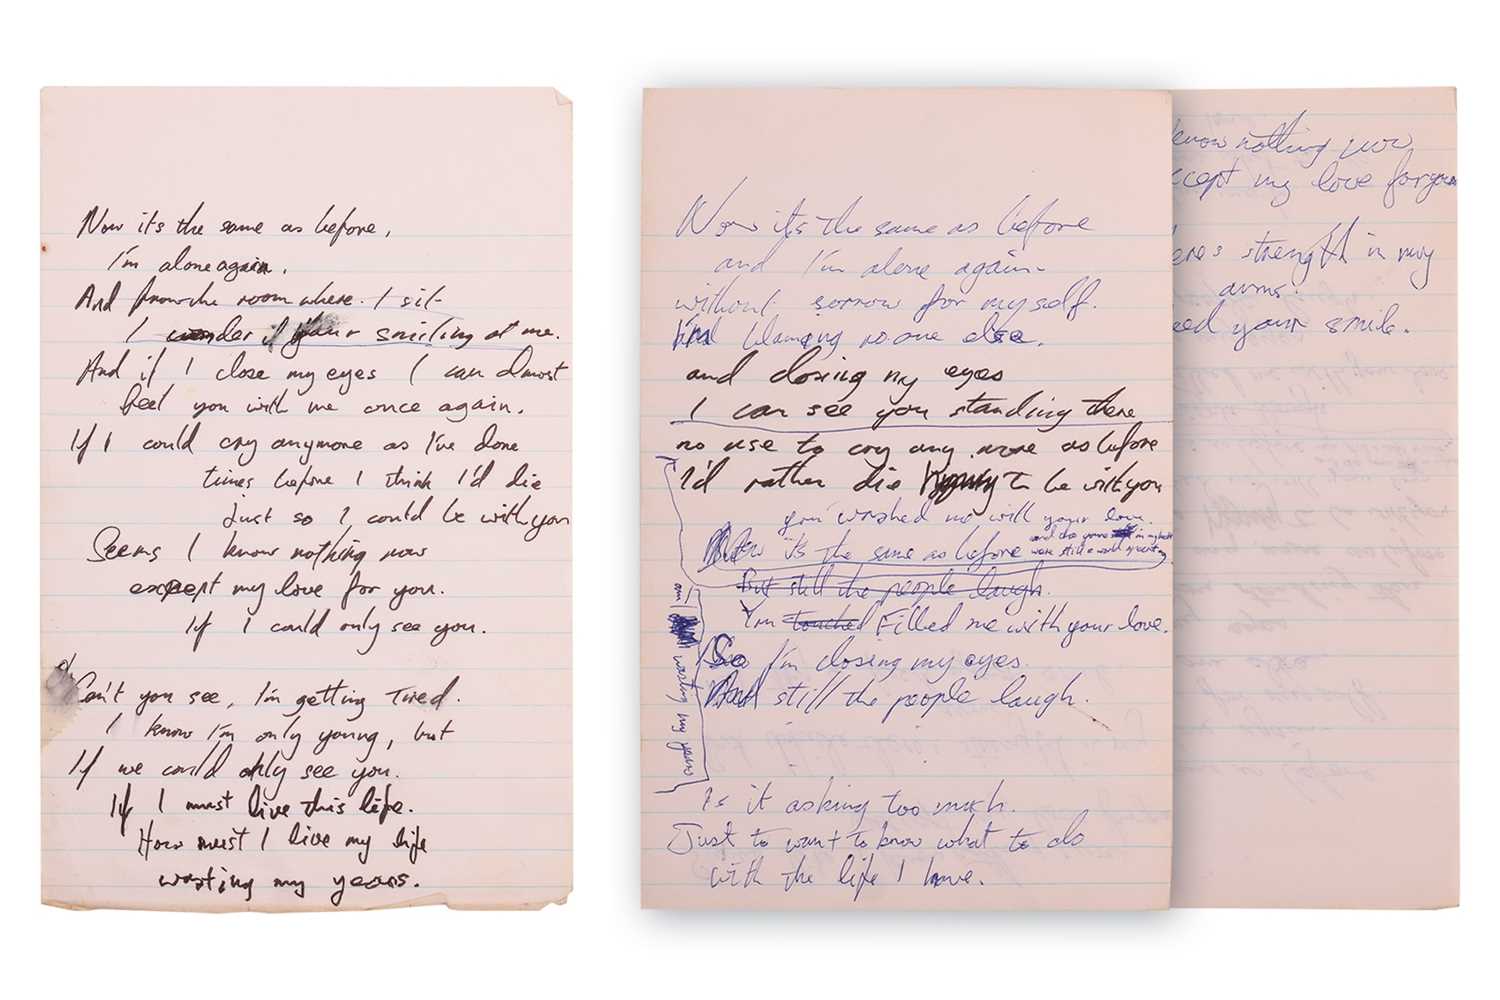 Now it's the same as before,
I'm alone again.
And from the room where I sit
I wonder if your smiling at me.
And if I close my eyes I can almost
feel you with me once again.
If I could cry anymore as I've done
times before I think I'd die
just so I could be with you
Seems I know nothing now
except my love for you.
If I could only see you.
Can't you see, I'm getting Tired.
I know I'm only young, but
If we could only see you.
If I must live this life.
How must I live my life
wasting my years.
Now it's the same as before
and I'm alone again-
without sorrow for myself.
And blaming no one else.
and closing my eyes
I can see you standing there
no use to cry any more as before
I'd rather die to be with you
you washed me will your love.
Now it's the same as before
But still the people laugh.
You touched Filled me with your love.
So I'm closing my eyes.
And still the people laugh.
am I wasting my years
Is it asking too much.
Just to want to know what to do
with the life I have.
know nothing now
ccept my love for you
eres strength in my
arms.
eed your smile.